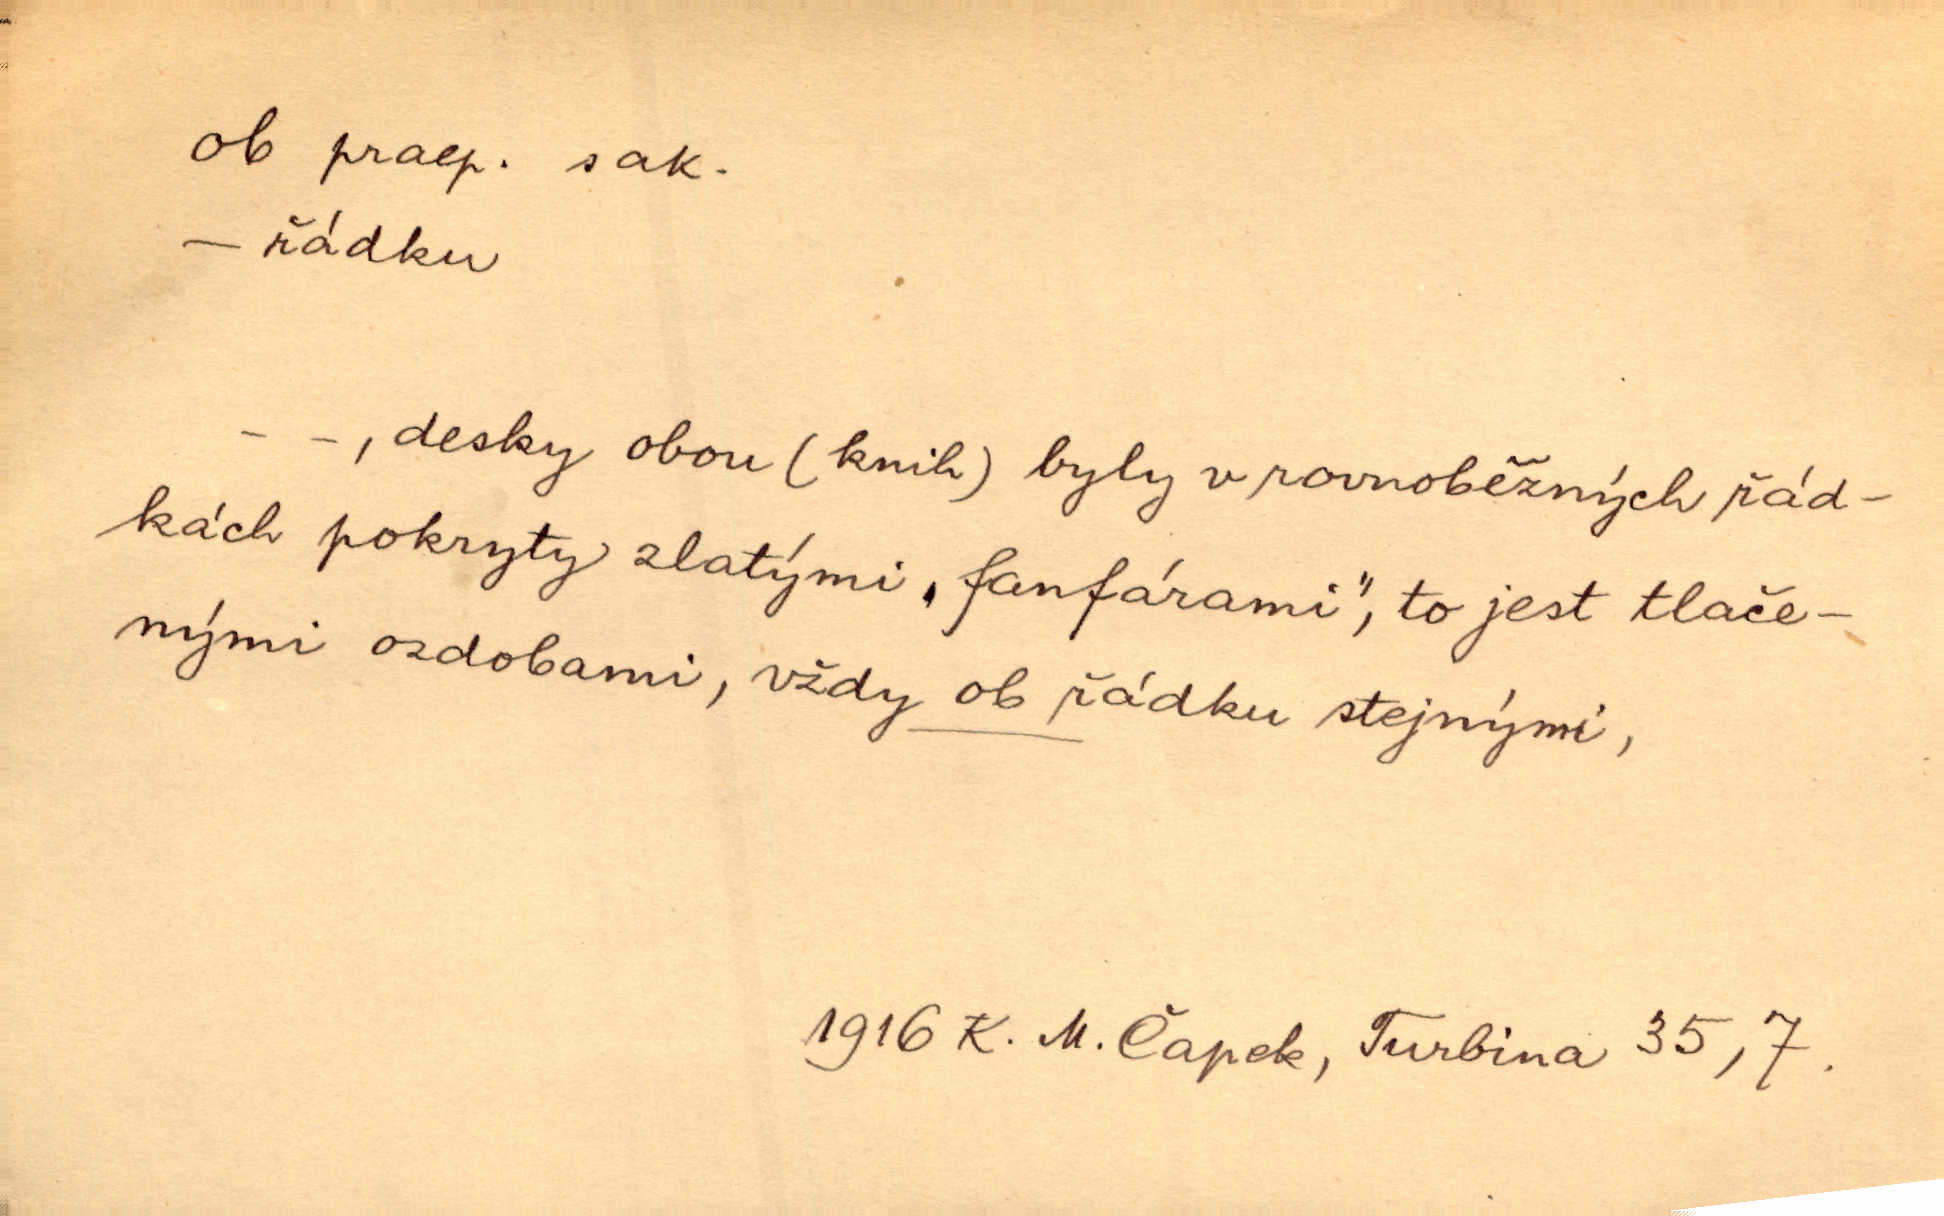 ob praep. s ak.
— řádku
- -, desky obou (knih) byly v rovnoběžných řád-
kách pokryty zlatými „fanfárami", to jest tlače-
nými ozdobami, vždy ob řádku stejnými,
1916 K. M. Čapek, Turbina 35, 7.